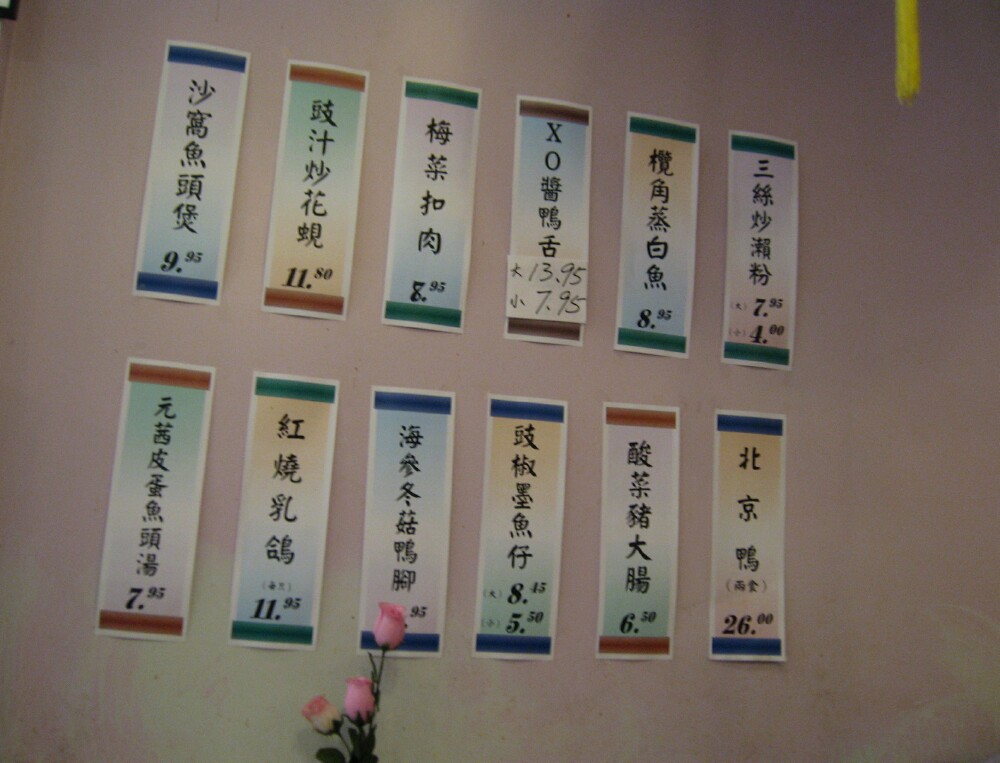 沙窩魚頭煲
9.95
豉汁炒花蜆
11.80
梅菜扣肉
8.95
XO醬鴨舌
大 13.95
小 7.95
欖角蒸白魚
8.95
三絲炒瀨粉
(大) 7.95
(小) 4.00
元茜皮蛋魚頭湯
7.95
紅燒乳鴿
(每只)
11.95
海參冬菇鴨腳
.95
豉椒墨魚仔
(大) 8.45
(小) 5.50
酸菜豬大腸
6.50
北京鴨
(兩食)
26.00